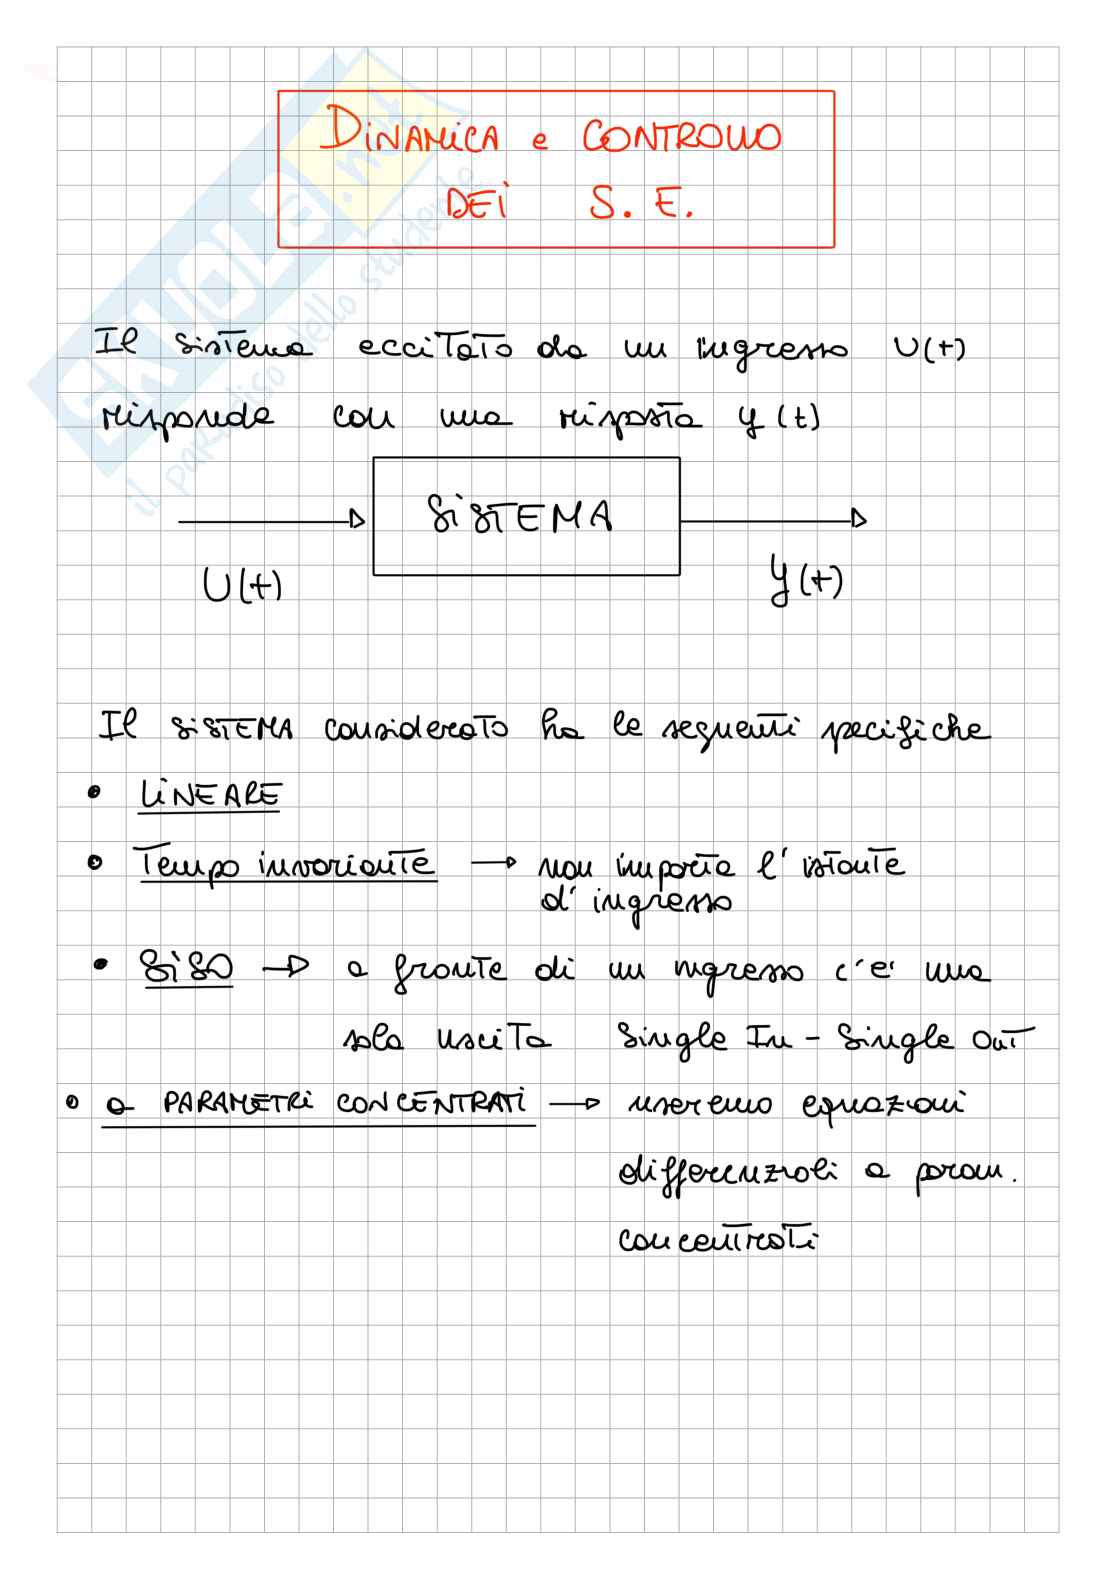 DiNAMiCA e CONTROLLO
DEi S. E.
Il sistema eccitato da un ingresso U(t)
risponde con una risposta y(t)
SiSTEMA
U(t)
y(t)
Il SiSTEMA considerato ha le seguenti specifiche
• LiNEARE
• Tempo invariante → non importa l'istante
d'ingresso
• SiSO → a fronte di un ingresso c'e' una
sola uscita Single In - Single Out
• a PARAMETRi CONCENTRATi → useremo equazioni
differenziali a param.
concentrati
SKUOLA.net
il paradiso dello studente